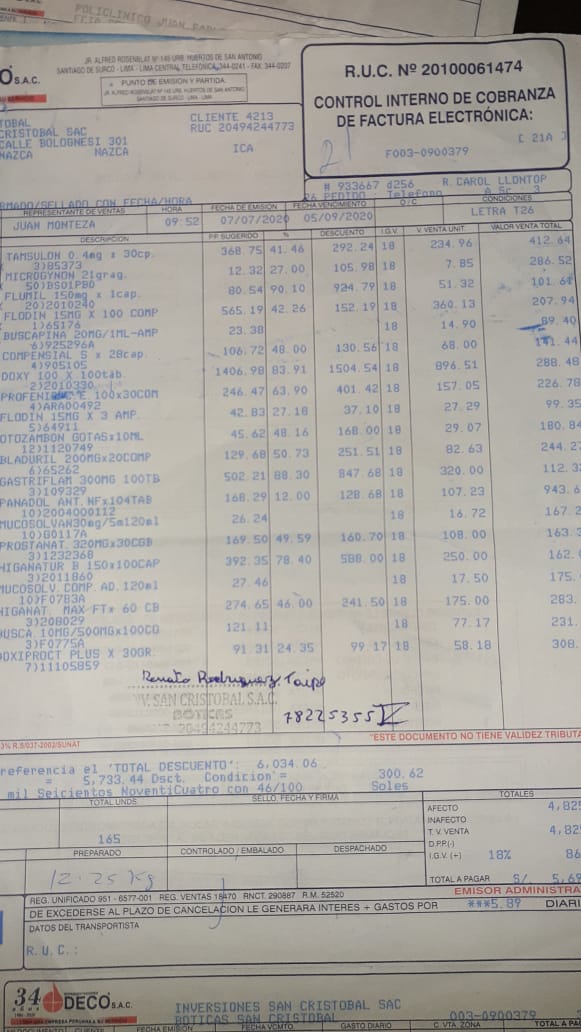 POLICLINICO JUAN PABLO
JR. ALFRED ROSENBLAT Nº 145 URB. HUERTOS DE SAN ANTONIO
SANTIAGO DE SURCO - LIMA - LIMA CENTRAL TELEFÓNICA, 344-0241 - FAX. 344-0207
O S.A.C.
PUNTO DE EMISIÓN Y PARTIDA.
JR. ALFRED ROSENBLAT Nº 145 URB. HUERTOS DE SAN ANTONIO
SANTIAGO DE SURCO LIMA - LIMA
R.U.C. Nº 20100061474
CONTROL INTERNO DE COBRANZA
DE FACTURA ELECTRÓNICA:
[ 21A ]
F003-0900379
TOBAL CLIENTE 4213
CRISTOBAL SAC RUC 20494244773
CALLE BOLOGNESI 301
NAZCA NAZCA ICA
# 933667 d256 R. CAROL LLONTOP
PEDIDO : Telefono A Sr. : 3
RMADO/SELLADO CON FECHA/HORA
REPRESENTANTE DE VENTAS HORA FECHA DE EMISIÓN FECHA VENCIMIENTO O/C CONDICIONES
JUAN MONTEZA 09:52 07/07/2020 05/09/2020 LETRA T26
DESCRIPCIÓN P.F. SUGERIDO % DESCUENTO I.G.V. V. VENTA UNIT. VALOR VENTA TOTAL
TAMSULON 0.4mg x 30cp. 368.75 41.46 292.24 18 234.96 412.64
3)85373
MICROGYNON 21grag. 12.32 27.00 105.98 18 7.85 286.52
50)BS01PBD
FLUMIL 150mg x 1cap. 80.54 90.10 924.79 18 51.32 101.61
20)2010240
FLODIN 15MG X 100 COMP 565.19 42.26 152.19 18 360.13 207.94
1)6S176
BUSCAPINA 20MG/1ML-AMP 23.38 18 14.90 89.40
6)925296A
COMPENSIAL S x 28cap. 106.72 48.00 130.56 18 68.00 141.44
4)905105
DOXY 100 X 100tab. 1406.98 83.91 1504.54 18 896.51 288.48
2)2010330
PROFENI E 100x30COM 246.47 63.90 401.42 18 157.05 226.78
4)ARA00492
FLODIN 15MG X 3 AMP. 42.83 27.18 37.10 18 27.29 99.35
5)64911
OTOZAMBON GOTASx10ML 45.62 48.16 168.00 18 29.07 180.84
12)1120749
BLADURIL 200MGx20COMP 129.68 50.73 251.51 18 82.63 244.27
6)65262
GASTRIFLAM 300MG 100TB 502.21 88.30 847.68 18 320.00 112.3
3)109329
PANADOL ANT.NFx104TAB 168.29 12.00 128.68 18 107.23 943.6
10)2004000112
MUCOSOLVAN30mg/5ml20ml 26.24 18 16.72 167.2
10)B0117A
PROSTANAT 320MGx30CGB 169.50 49.59 160.70 18 108.00 163.3
3)1232368
HIGANATUR B 150x100CAP 392.35 78.40 588.00 18 250.00 162.0
3)2011860
MUCOSOLV.COMP.AD.120ml 27.46 18 17.50 175.
10)F07B3A
HIGANAT. MAX FT* 60 CB 274.65 46.00 241.50 18 175.00 283.
3)208029
BUSCA.10MG/500MGx100CO 121.11 18 77.17 231.
3)F0775A
DOXIPROCT PLUS X 30GR. 91.31 24.35 99.17 18 58.18 308.
7)11105859
Renato Rodriguez Taipe
V. SAN CRISTOBAL S.A.C.
BOTICAS
20494244773
78225355
3% R.S/037-2002/SUNAT
"ESTE DOCUMENTO NO TIENE VALIDEZ TRIBUTA
referencia el 'TOTAL DESCUENTO': 6,034.06
= 5,733.44 Dsct. Condicion = 300.62
mil Seicientos NoventiCuatro con 46/100 Soles
TOTAL UNDS. SELLO, FECHA Y FIRMA TOTALES
165
AFECTO 4,825
INAFECTO
T. V. VENTA 4,825
D.P.P.(-)
I.G.V. (+) 18% 86
TOTAL A PAGAR S/. 5,69
PREPARADO CONTROLADO / EMBALADO DESPACHADO
12.25 Kg
EMISOR ADMINISTRA
REG. UNIFICADO 951 - 6577-001 REG. VENTAS 18470 RNCT. 290887 R.M. 52520
DE EXCEDERSE AL PLAZO DE CANCELACION LE GENERARA INTERES + GASTOS POR ***5.89 DIARI
DATOS DEL TRANSPORTISTA
R.U.C.:
34 años DECO S.A.C.
INVERSIONES SAN CRISTOBAL SAC
BOTICAS SAN CRISTOBAL 003-0900379
FECHA EMISIÓN FECHA VCMTO. GASTO DIARIO C. VTA. ZONA TOTAL